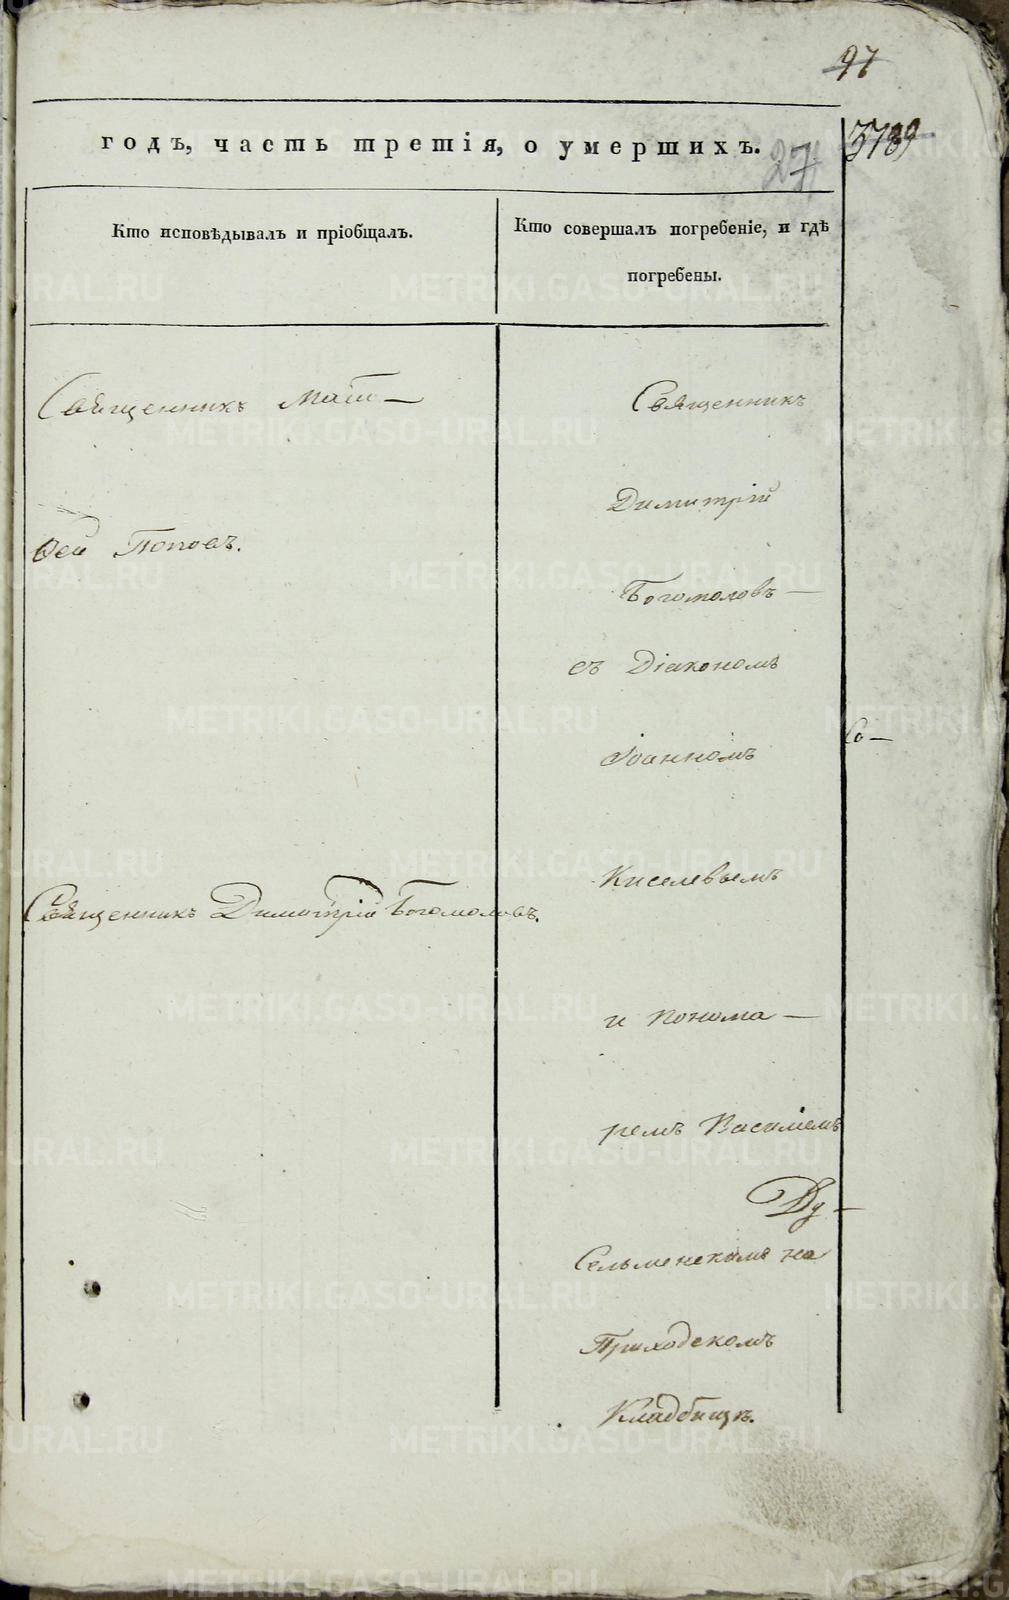 97
годъ, часть третія, о умершихъ.
27
Кто исповѣдывалъ и пріобщалъ.
Кто совершалъ погребеніе, и гдѣ
погребены.
Священникъ Мат—
ѳеи Поповъ.
Священникъ Димитрій Богомоловъ.
Священникъ
Димитрій
Богомоловъ —
съ Діакономъ
Іоанномъ
Киселевымъ
и понома—
ремъ Василіемъ
Ду—
Сельменскимъ на
Приходскомъ
Кладбищѣ.
Со—
METRIKI.GASO-URAL.RU